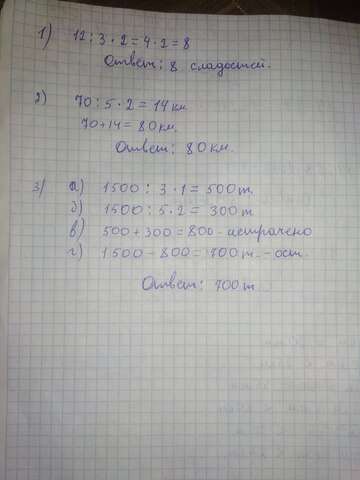 1) 12 : 3 · 2 = 4 · 2 = 8
Ответ: 8 сладостей.
2) 70 : 5 · 2 = 14 км
70 + 14 = 80 км.
Ответ: 80 км.
3) а) 1500 : 3 · 1 = 500 т.
б) 1500 : 5 · 2 = 300 т
в) 500 + 300 = 800 - истрачено
г) 1500 - 800 = 700 т. - ост.
Ответ: 700 т